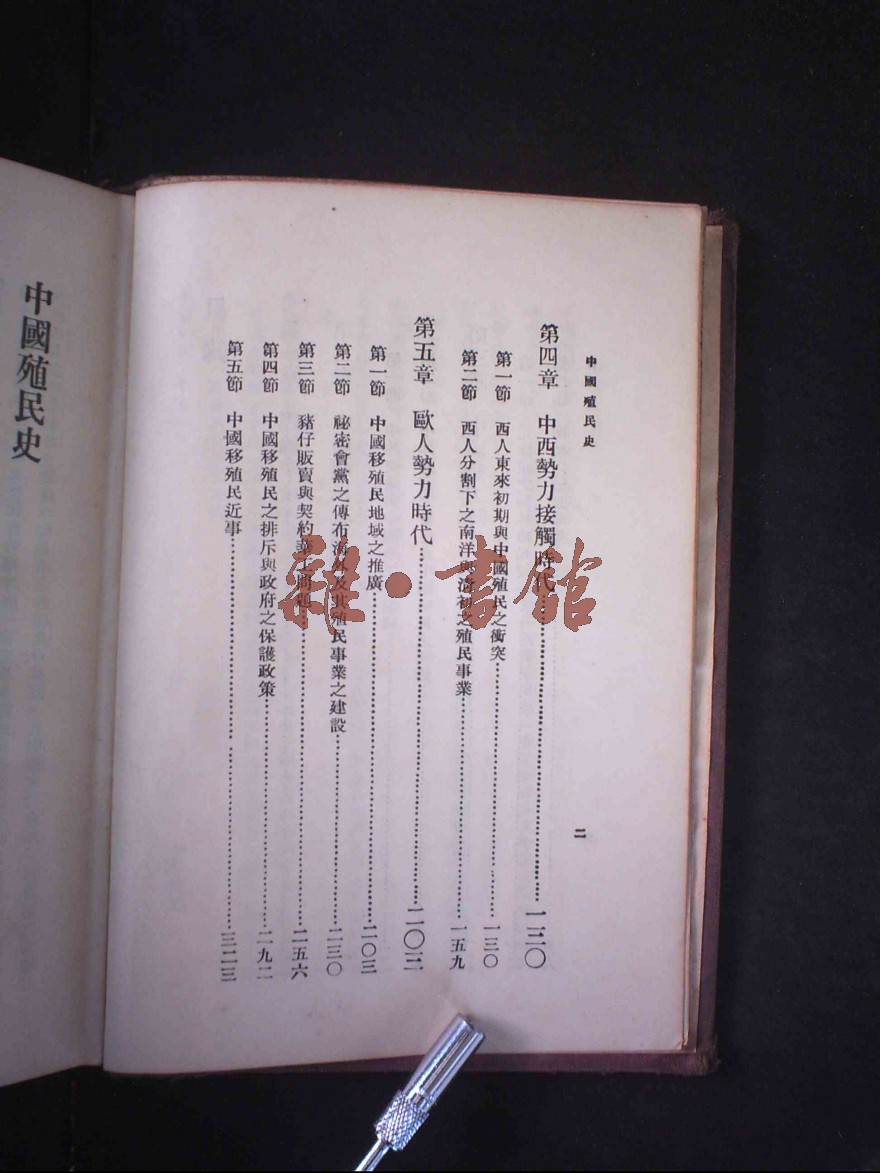 中國殖民史
二
第四章 中西勢力接觸時代……一三〇
第一節 西人東來初期與中國殖民之衝突……一三〇
第二節 西人分割下之南洋與清初之殖民事業……一五九
第五章 歐人勢力時代……二〇三
第一節 中國移殖民地域之推廣……二〇三
第二節 祕密會黨之傳布海外及其殖民事業之建設……二三〇
第三節 豬仔販賣與契約華工問題……二五六
第四節 中國移殖民之排斥與政府之保護政策……二九二
第五節 中國移殖民近事……三二三
中國殖民史
雜·書館